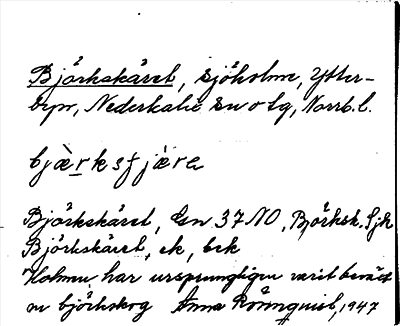 Björkskäret, sjöholme, Ytter-
byn, Nederkalix sn o tg, Norrb. l.
bjàrksfjæ̀ra
Björkskäret, Gn 37 NO, Björksk. Sjk
Björkskäret, ek,
Holmen har ursprungligen varit beväxt
av björkskog Anna Rönnquist, 1947